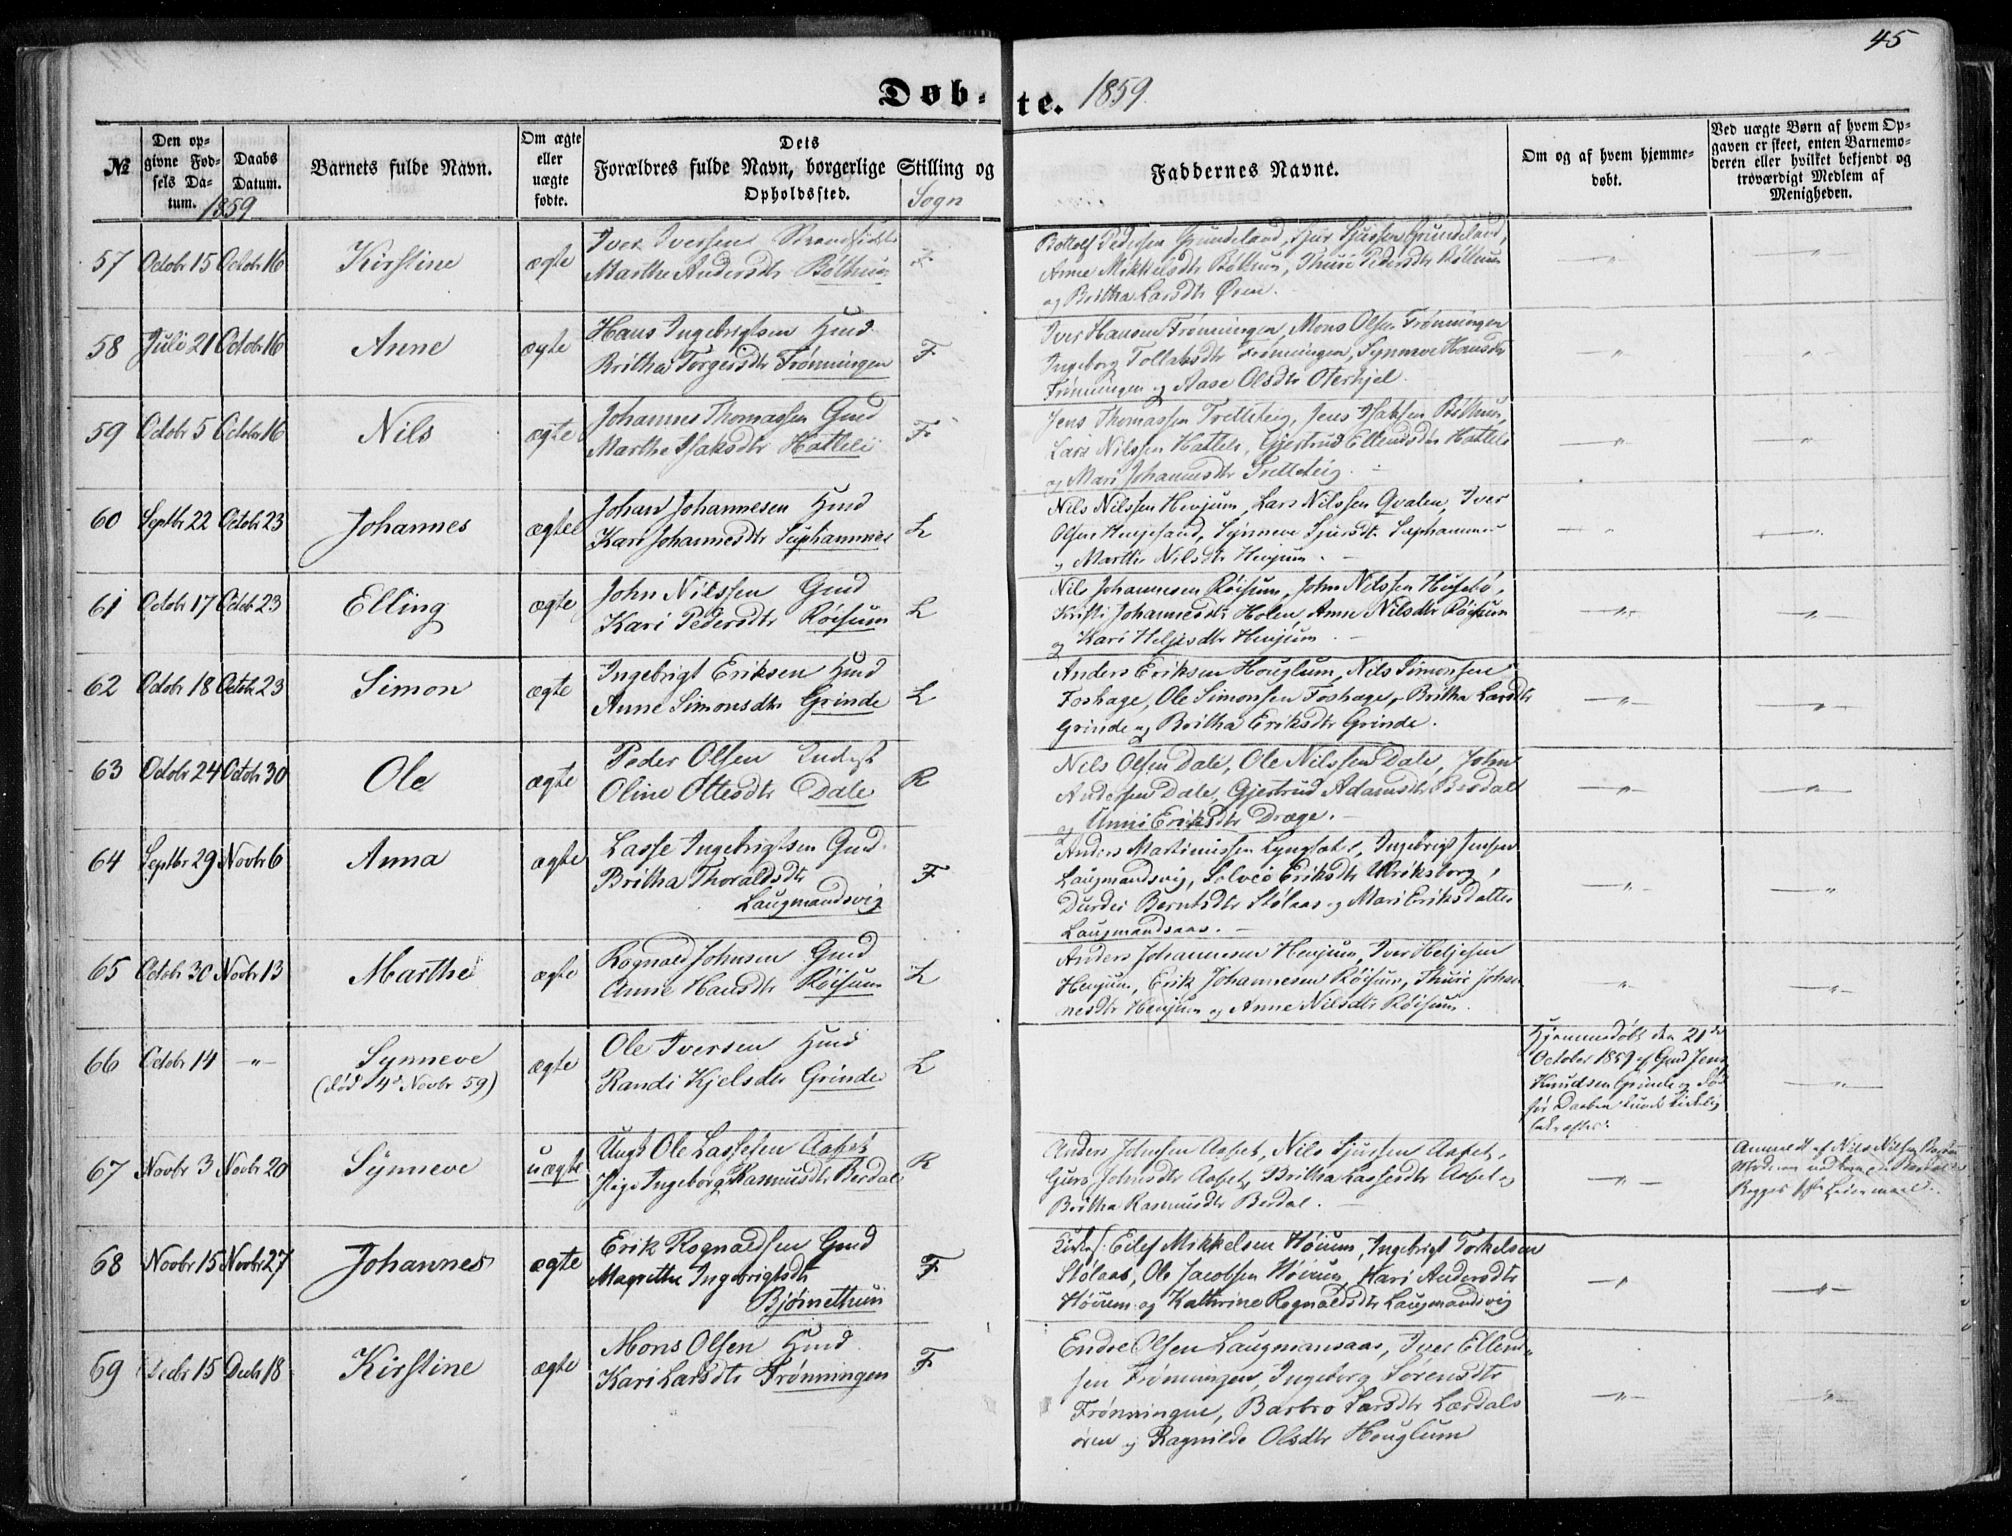 45
Døb-te. 1859
№
Den op-
givne Fød-
sels Da-
tum.
1859
Daabs
Datum.
Barnets fulde Navn.
Om ægte
eller
uægte
fødte.
Dets
Forældres fulde Navn, borgerlige Stilling og
Opholdssted.
Sogn
Faddernes Navne.
Om og af hvem hjemme-
døbt.
Ved uægte Børn af hvem Op-
gaven er skeet, enten Barnemo-
deren eller hvilket bekjendt og
troværdigt Medlem af
Menigheden.
57 Octobr 15 Octobr 16 Kirstine ægte
Iver Iversen Strandsidder
Marthe Andersdtr Bøthun
F
Bottolf Pedersen Grundeland, Sjur Sjursen Grundeland,
Anne Mikkelsdtr Bøthun, Thuri Pedersdtr Bøthun
og Britha Larsdtr Øren.
58 Juli 21 Octobr 16 Anne ægte
Hans Ingebrigtsen Hmd
Britha Torgersdtr Frønningen
F
Iver Hansen Frønningen, Mons Olsen Frønningen
Ingeborg Tollaksdtr Frønningen, Synneve Hansdtr
Frønningen og Aase Olsdtr Oterhjel.
59 Octobr 5 Octobr 16 Nils ægte
Johannes Thomassen Gmd
Marthe Isaksdtr Hatleli
F
Jens Thomassen Tretteteig, Jens Isaksen Bøthun,
Lars Nilssen Hatleli, Gjertrud Ellendsdtr Hatleli
og Mari Johannesdtr Tretteteig.
60 Septbr 22 Octobr 23 Johannes ægte
Johan Johannesen Hmd
Kari Johannesdtr Suphammer
L
Nils Nilssen Henjum, Lars Nilssen Qvalen, Iver
Olsen Henjesand, Synneve Sjursdtr Suphammer
og Marthe Nilsdtr Henjum.
61 Octobr 17 Octobr 23 Elling ægte
John Nilssen Gmd
Kari Pedersdtr Røisum
L
Nils Johannesen Røisum, John Nilssen Husebø,
Kristi Johannesdtr Holen, Anne Nilsdtr Røisum
og Kari Heljesdtr Henjum.
62 Octobr 18 Octobr 23 Simon ægte
Ingebrigt Eriksen Hmd
Anne Simonsdtr Grinde
L
Anders Eriksen Houglum, Nils Simonsen
Foshage, Ole Simonsen Foshage, Britha Larsdtr
Grinde og Britha Eriksdtr Grinde.
63 Octobr 24 Octobr 30 Ole ægte
Peder Olsen Inderst
Oline Ottesdtr Dale
R
Nils Olsen Dale, Ole Nilssen Dale, John
Andersen Dale, Gjertrud Adamsdtr Berdal
og Anne Eriksdtr Drege.
64 Septbr 29 Novbr 6 Anna ægte
Lasse Ingebrigtsen Gmd.
Britha Thoraldsdtr
Laugmandsvig
F
Anders Martinussen Lyngsæt, Ingebrigt Jensen
Laugmandsvig, Solvei Eriksdtr Ulriksborg,
Durdei Berntsdtr Stølaas og Mari Eriksdatter
Laugmandsaas.
65 Octobr 30 Novbr 13 Marthe ægte
Rognald Johnsen Gmd
Anne Hansdtr Røisum
L
Anders Johannesen Henjum, Iver Heljesen
Henjum, Erik Johannesen Røisum, Thuri Johan
nesdtr Henjum og Anne Nilsdtr Røisum.
66 Octobr 14 -"- Synneve
(død 4de Novbr 59)
ægte
Ole Iversen Hmd
Randi Kjelsdtr Grinde
L
Hjemmedøbt den 21de
October 1859 af Gmd Jens
Knudsen Grinde og død
før Daaben kunde kirkelig
bekræftes.
67 Novbr 3 Novbr 20 Synneve uægte
Ungk Ole Lassesen Aafet
Pige Ingeborg Rasmusdtr Berdal
R
Anders Johnsen Aafet, Nils Sjursen Aafet,
Guro Johnsdtr Aafet, Britha Lassesdtr Aafet og
Britha Rasmusdtr Berdal.
Anmeldt af Nils Nilsen
Begges 1ste Leiermaal.
68 Novbr 15 Novbr 27 Johannes ægte
Erik Rognaldsen Gmd
Magrethe Ingebrigtsdtr
Bjørnethun
F
Eilef Mikkelsen Høium, Ingebrigt Torkelsen
Stølaas, Ole Jacobsen Høium, Kari Andersdtr
Høium og Kathrine Rognaldsdtr Laugmandsvig
69 Decbr 15 Decbr 18 Kirstine ægte
Mons Olsen Hmd
Kari Larsdtr Frønningen
F
Endre Olsen Laugmansaas, Iver Ellend-
sen Frønningen, Ingeborg Sørensdtr
Frønningen, Barbro Larsdtr Lærdals
øren og Ragnilde Olsdtr Houglum